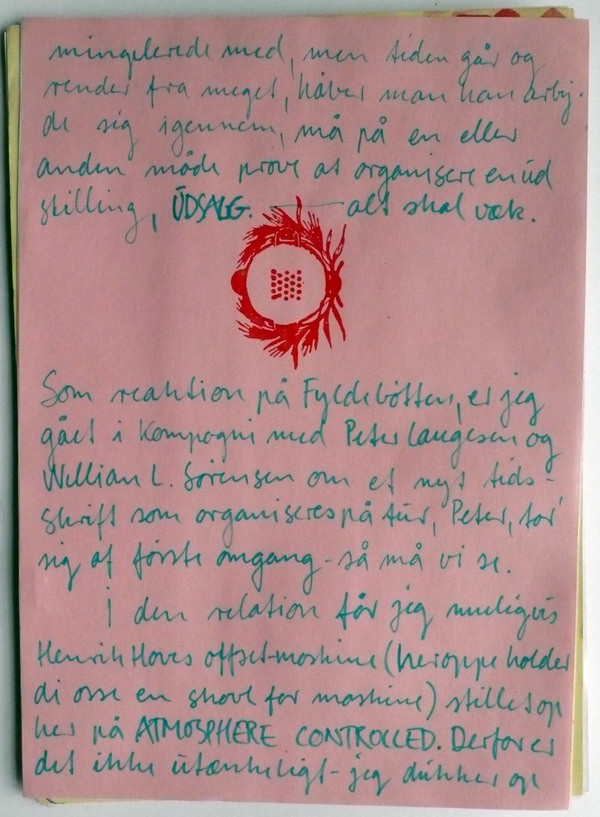 mingelerede med, men tiden går og
render fra meget, håber man kan arbej-
de sig igennem, må på en eller
anden måde prøve at organisere en ud
stilling, UDSALG. — alt skal væk.
Som reaktion på Fyldebøtten, er jeg
gået i kompagni med Peter Laugesen og
William L. Sørensen om et nyt tids-
skrift som organiseres på tur, Peter, tar'
sig af første omgang - så må vi se.
I den relation får jeg muligvis
Henrik Haves offset-maskine (heroppe holder
di osse en skove for maskine) stillet op
her på ATMOSPHERE CONTROLLED. Derfor er
det ikke utænkeligt - jeg dukker op